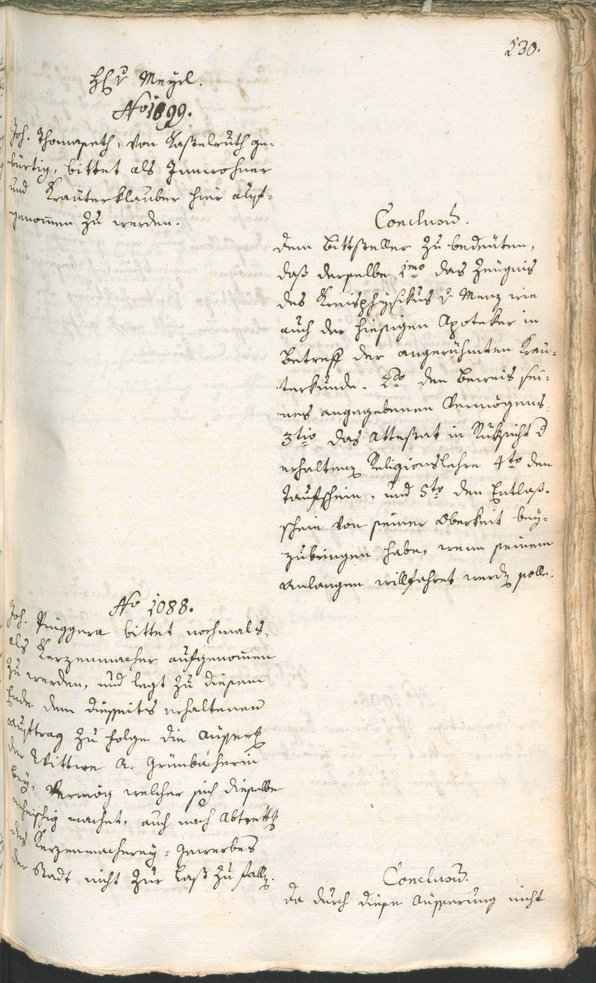 230.
H. v. Meyrl.
No 1099.
Joh. Thomaseth, von Kastelruth ge-
bürtig, bittet als Innwohner
und Kräuterklauber hier auf-
genommen zu werden.
Conclusum.
Dem Bittsteller zu bedeuten,
daß derselbe 1mo das Zeugnis
des Kreisphysikus v. Menz wie
auch der hiesigen Apoteker in
Betreff der angerühmten Kräu-
terkunde. 2do den Beweis sei-
nes angegebenen Vermögens
3tio das Attestat in Rüksicht d
erhalteny Religionslehre 4to den
Taufschein, und 5to den Entlaß-
schein von seiner Oberkeit bey-
zubringen habe, wenn seinem
Anlangen willfahret werdy solle.
No 1088.
Joh. Pinggera bittet nochmals
als Kerzenmacher aufgenommen
zu werden, und legt zu diesem
Ende dem diesseits erhaltenen
Auftrag zu folge die Äusserg
der Wittwe A. Grünbacherin
bey, Vermög welcher sich dieselbe
anheischig machet, auch nach Abtrettg
des Kerzenmacherey-Gewerbes
der Stadt nicht zur Last zu fally.
Conclusum.
Da durch diese Äusserung nicht